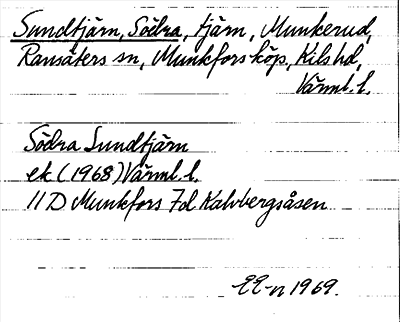 Sundtjärn, Södra, tjärn, Munkerud,
Ransäters sn, Munkfors köp, Kils hd,
Värml. l.
Södra Sundtjärn
ek (1968) Värml. l.
11 D Munkfors 7d Kalvbergsåsen
1969.